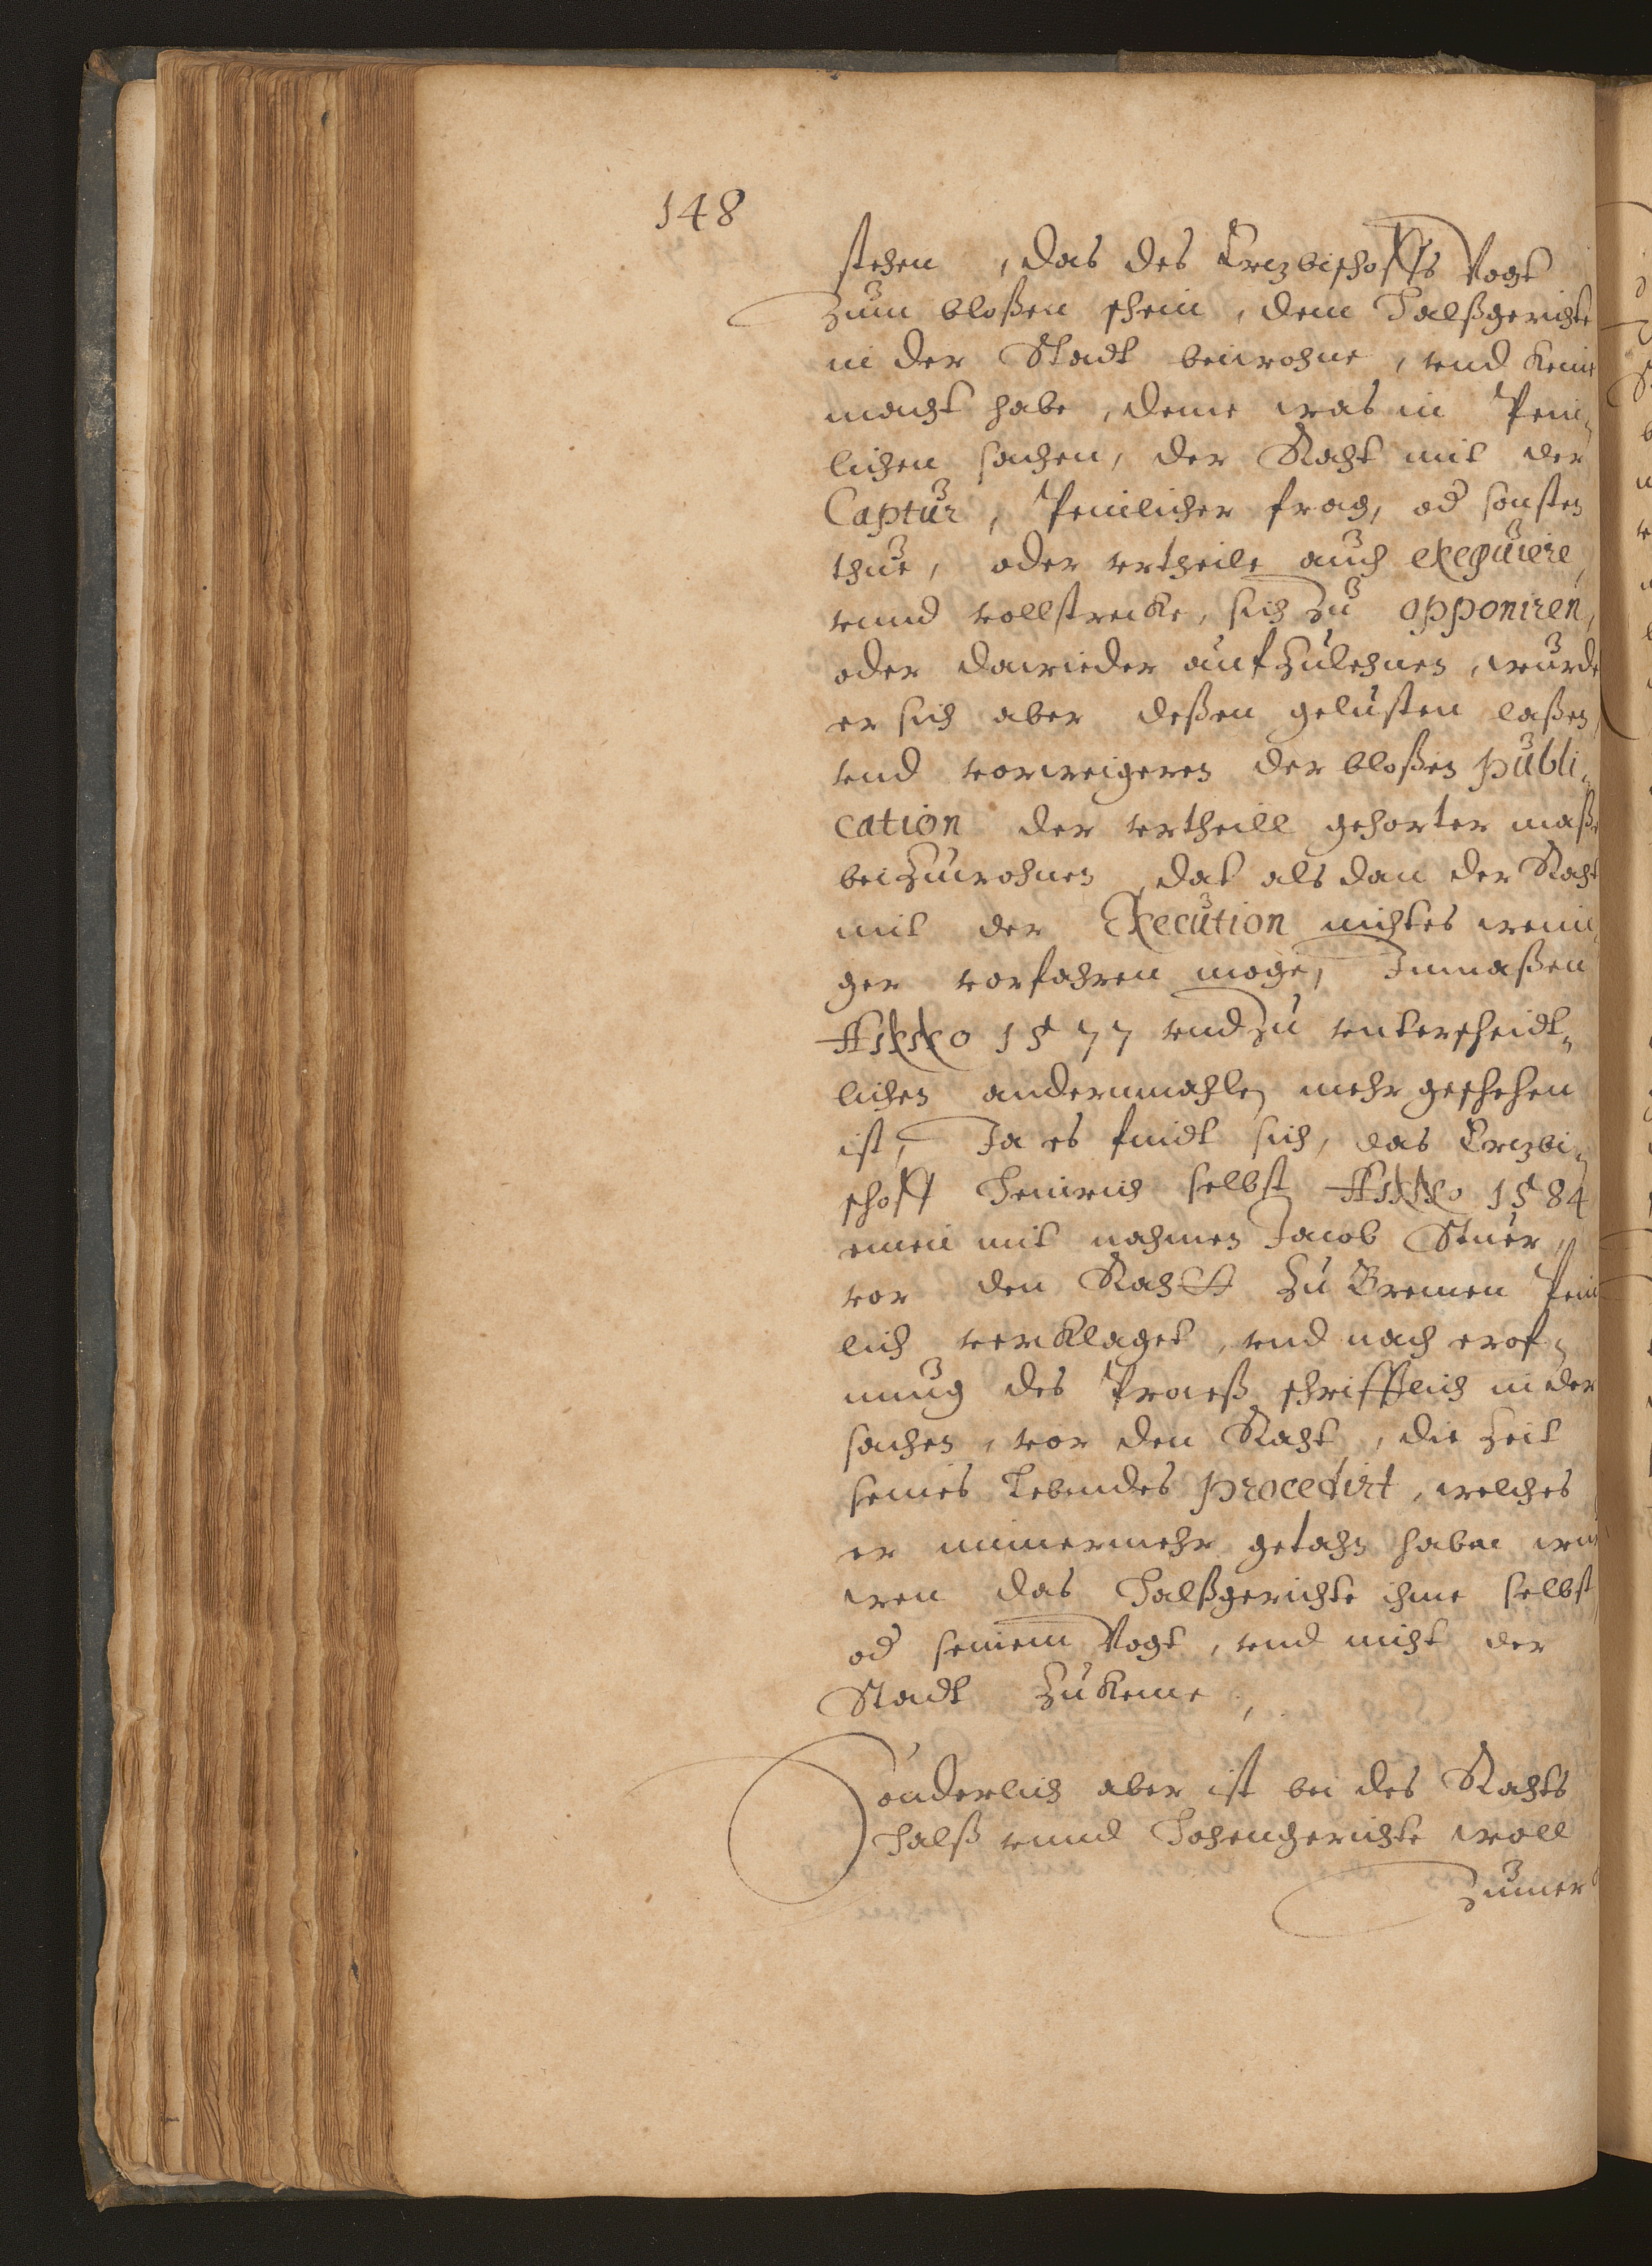 148
stehen, das des Ertzbischoffs Vogt
zum bloßen schein, dem Halßgerichte
in der Stadt beiwohne, vnd keine
macht habe, deme was in Pein„
lichen sachen, der Raht mit der
Captur, Peinlicher frag, od sonsten
thue, oder vrtheile auch exequiere,
vnnd vollstrecke, sich zu opponiren,
oder dawieder aufzulehnen, wurde
er sich aber deßen gelusten laßen,
vnd vorweigeren der bloßen publi„
cation der vrtheill gehorter maße
beizuwohnen, dat als dan der Raht
mit der Execution nichtes weni„
ger vorfahren moge, Inmaßen
Anno 1577 vnd zu vnterscheidt„
lichen andernmahlen mehr geschehen
ist, Ja es findt sich, das Ertzbi„
schoff Heinrich selbst Anno 1584
einen mit nahmen Jacob Stuer,
vor den Rahtt zu Bremen Pein
lich verklaget, vnd nach erof„
nung des Proceß schrifftlich in der
sachen, vor den Raht, die zeit
seines Lebendes procedirt, welches
er nimermehr getahn haben
wen das Halßgerichte ihme selbst,
od seinem Vogt, vnd nicht der
Stadt zukeme,
Sonderlich aber ist bei des Rahts
Halß vnnd Hohengerichte woll
zumer